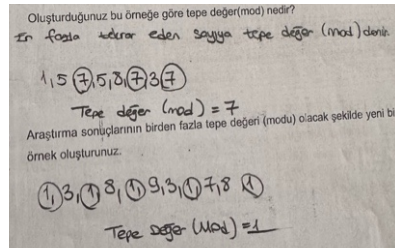 Oluşturduğunuz bu örneğe göre tepe değer(mod) nedir?
En fazla tekrar eden sayıya tepe değer (mod) denir.
1,5 7,5,8,7,3 7
Tepe değer (mod) = 7
Araştırma sonuçlarının birden fazla tepe değeri (modu) olacak şekilde yeni bi
örnek oluşturunuz.
1,3,1 8,1 9,3,1 7,8 1
Tepe Değer (Mod) = 1